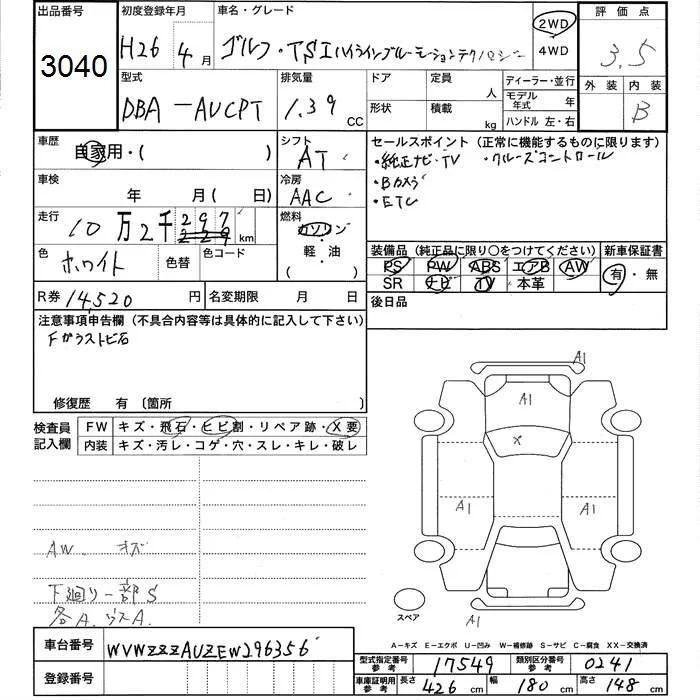 出品番号 初度登録年月 車名・グレード 評価点
3040 H26 4月 ゴルフ・TSIハイラインブルーモーションテクノロジー 2WD 4WD 3.5
型式 排気量 ドア 定員 人 ディーラー・並行 外装 内装
DBA-AUCPT 1.39 CC 形状 積載 kg モデル年式 年 ハンドル 左・右 B
車歴 自家用・( ) シフト AT セールスポイント (正常に機能するものに限ります)
・純正ナビ・TV ・クルーズコントロール
・Bカメラ
・ETC
車検 年 月( 日) 冷房 AAC
走行 10万2千297 km 燃料 ガソリン 軽・油 ( )
色 ホワイト 色替 色コード
装備品 (純正品に限り○をつけてください) 新車保証書
PS PW ABS エアB AW 有・無
SR ナビ TV 本革
R券 14,520円 名変期限 月 日 後日品
注意事項申告欄 (不具合内容等は具体的に記入して下さい)
Fガラストビ石
修復歴 有 (箇所 )
検査員記入欄 FW キズ・飛石・ヒビ割・リペア跡・X要
内装 キズ・汚レ・コゲ・穴・スレ・キレ・破レ
A1
A1
X
A1 A1
A1
AW キズ
下廻り一部S
各A.ウスA.
スペア
A-キズ E-エクボ U-凹み W-補修跡 S-サビ C-腐食 XX-交換済
車台番号 WVWZZZAUZEW296356
登録番号
型式指定番号 参考 17549 類別区分番号 参考 0241
車庫証明用 参考 長さ 426 cm 幅 180 cm 高さ 148 cm